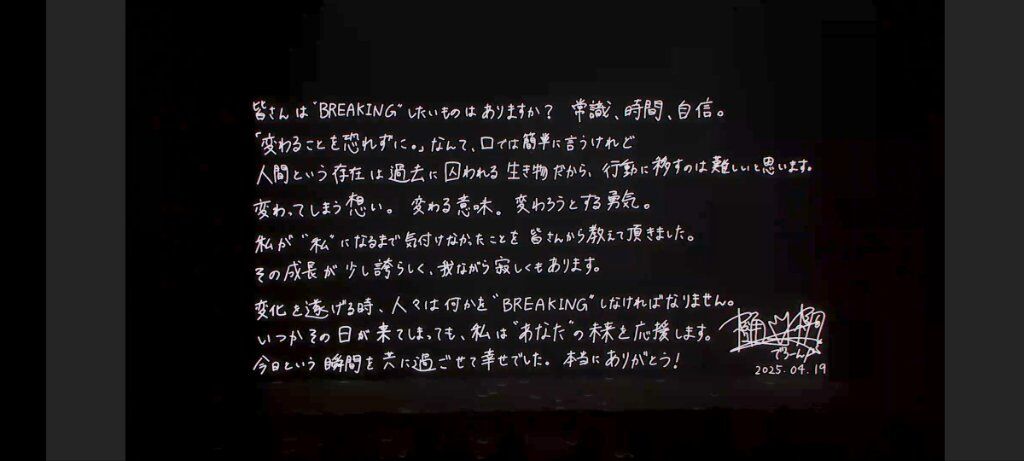 皆さんは"BREAKING"したいものはありますか? 常識、時間、自信。
「変わることを恐れずに。」なんて、口では簡単に言うけれど
人間という存在は過去に囚われる生き物だから、行動に移すのは難しいと思います。
変わってしまう想い。変わる意味。変わろうとする勇気。
私が"私"になるまで気付けなかったことを皆さんから教えて頂きました。
その成長が少し誇らしく、我ながら寂しくもあります。
変化を遂げる時、人々は何かを"BREAKING"しなければなりません。
いつかその日が来てしまっても、私は"あなた"の未来を応援します。
今日という瞬間を共に過ごせて幸せでした。本当にありがとう!
でろーん
2025.04.19